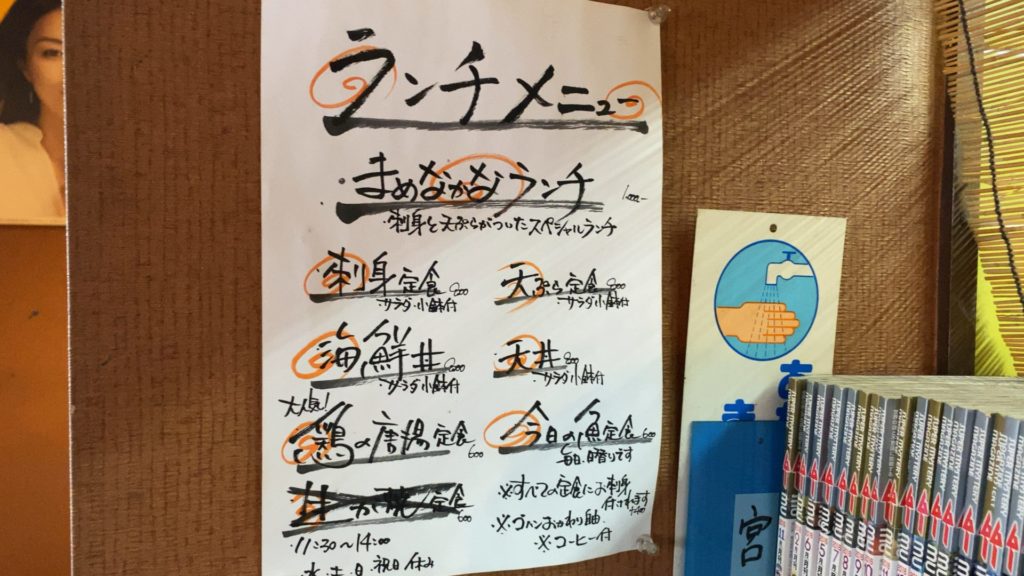 ランチメニュー
まめなかなランチ 1,000-
・刺身と天ぷらがついたスペシャルランチ
刺身定食 800
・サラダ小鉢付
天ぷら定食 800
・サラダ小鉢付
海鮮丼 800
・サラダ小鉢付
天丼 800
・サラダ小鉢付
大人気!
鶏の唐揚定食 600
今日の魚定食 600
毎日日替ります
定食 600
※すべての定食にお刺身
付けれます
※ゴハンおかわり自由
※コーヒー付
11:30〜14:00
水・土・日・祝日休み
宮